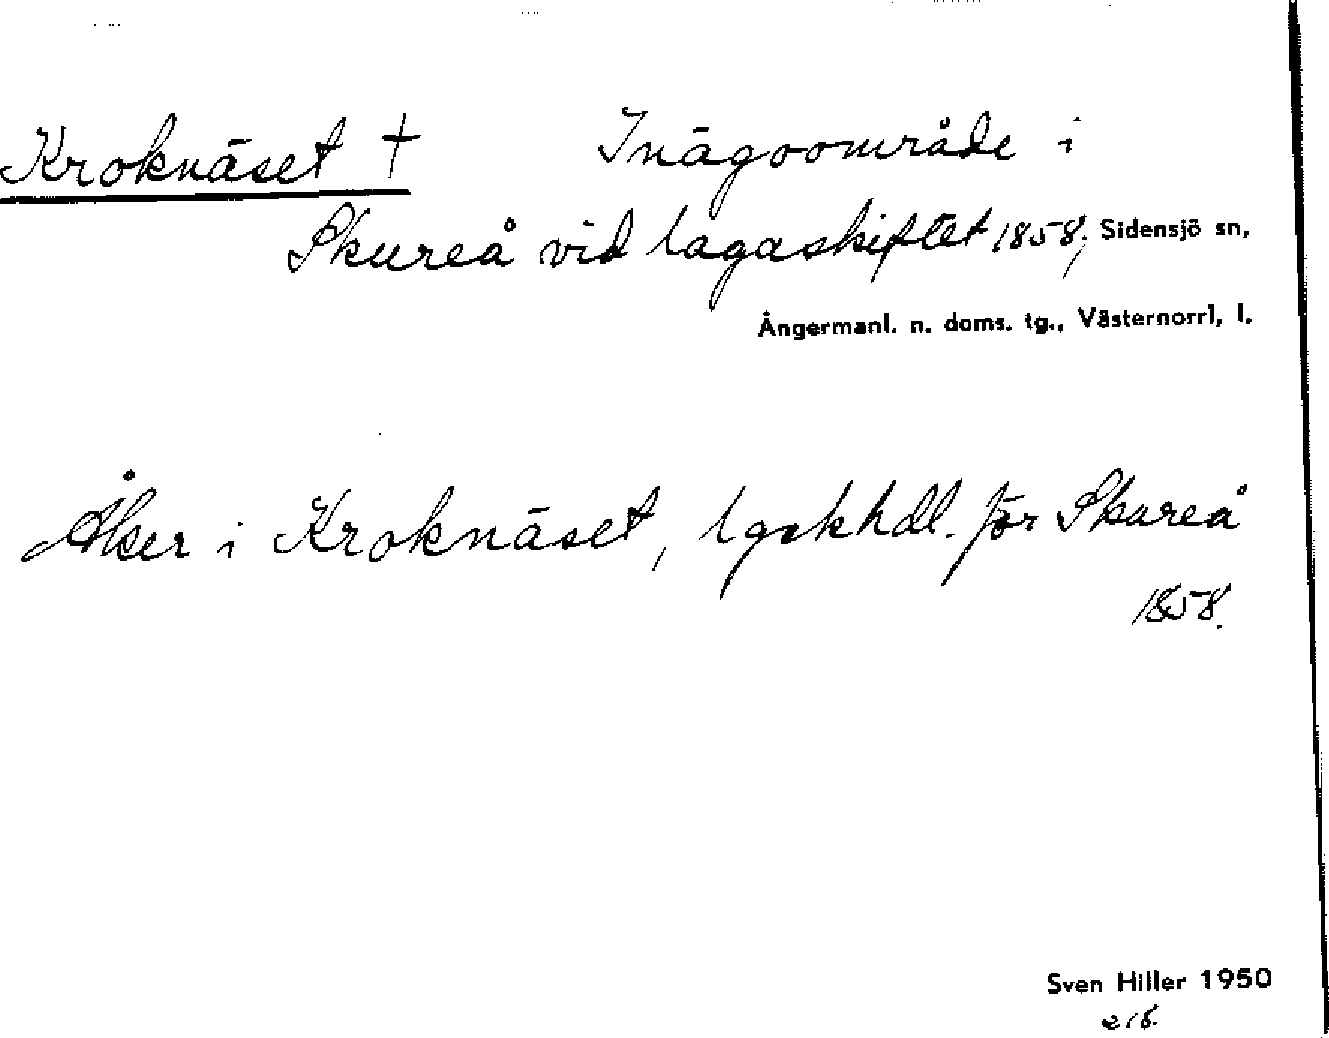 Kroknäset † Inägoområde i
Skureå vid lagaskiftet 1858, Sidensjö sn,
Ångermanl. n. doms. tg., Västernorrl. l.
Åker i Kroknäset, lgskhdl. för Skureå
1858.
Sven Hiller 1950